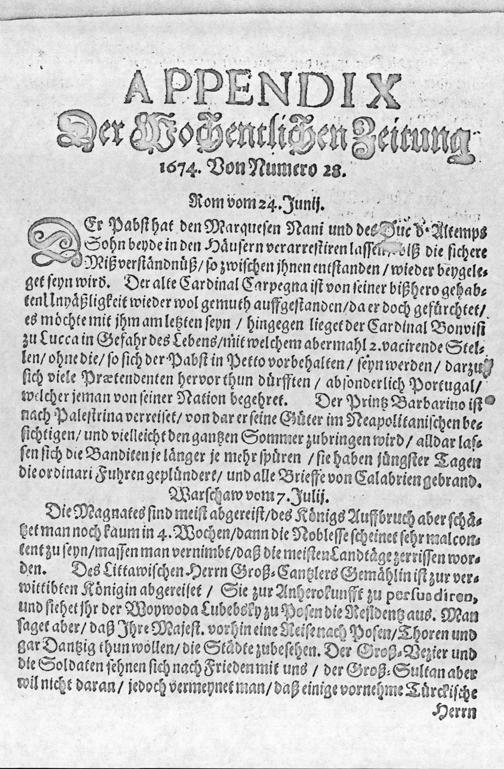 APPENDIX
Der Wochentlichen Zeitung
1674. Von Numero 28.
Rom vom 24. Junij.
DEr Pabst hat den Marquesen Nani und des Duc d'Altemps
Sohn beyde in den Häusern verarrestiren lassen / biß die sichere
Mißverständnüß / so zwischen jhnen entstanden / wieder beygele-
get seyn wird. Der alte Cardinal Carpegna ist von seiner bißhero gehab-
ten Unpäßligkeit wieder wol gemuth auffgestanden / da er doch gefürchtet /
es möchte mit jhm am letzten seyn / hingegen lieget der Cardinal Bonvisi
zu Lucca in Gefahr des Lebens / mit welchem abermahl 2. vacirende Stel-
len / ohne die / so sich der Pabst in Petto vorbehalten / seyn werden / darzu
sich viele Prætendenten hervor thun dürfften / absonderlich Portugal /
welcher jeman von seiner Nation begehret. Der Printz Barbarino ist
nach Palestrina verreiset / von dar er seine Güter im Neapolitanischen be-
sichtigen / und vielleicht den gantzen Sommer zubringen wird / alldar las-
sen sich die Banditen je länger je mehr spüren / sie haben jüngster Tagen
die ordinari Fuhren geplündert / und alle Brieffe von Calabrien gebrand.
Warschaw vom 7. Julij.
Die Magnates sind meist abgereist / des Königs Auffbruch aber schä-
tzet man noch kaum in 4. Wochen / dann die Noblesse scheinet sehr malcon-
tent zu seyn / massen man vernimbt / daß die meisten Landtäge zerrissen wor-
den. Des Littawischen Herrn Groß-Cantzlers Gemählin ist zur ver-
wittibten Königin abgereiset / Sie zur Anherokunfft zu persuadiren,
und siehet jhr der Woywoda Lubebsky zu Posen die Residentz aus. Man
saget aber / daß Jhre Majest. vorhin eine Reise nach Posen / Thoren und
gar Dantzig thun wollen / die Städte zubesehen. Der Groß-Vezier und
die Soldaten sehnen sich nach Frieden mit uns / der Groß-Sultan aber
wil nicht daran / jedoch vermeynet man / daß einige vornehme Türckische
Herrn